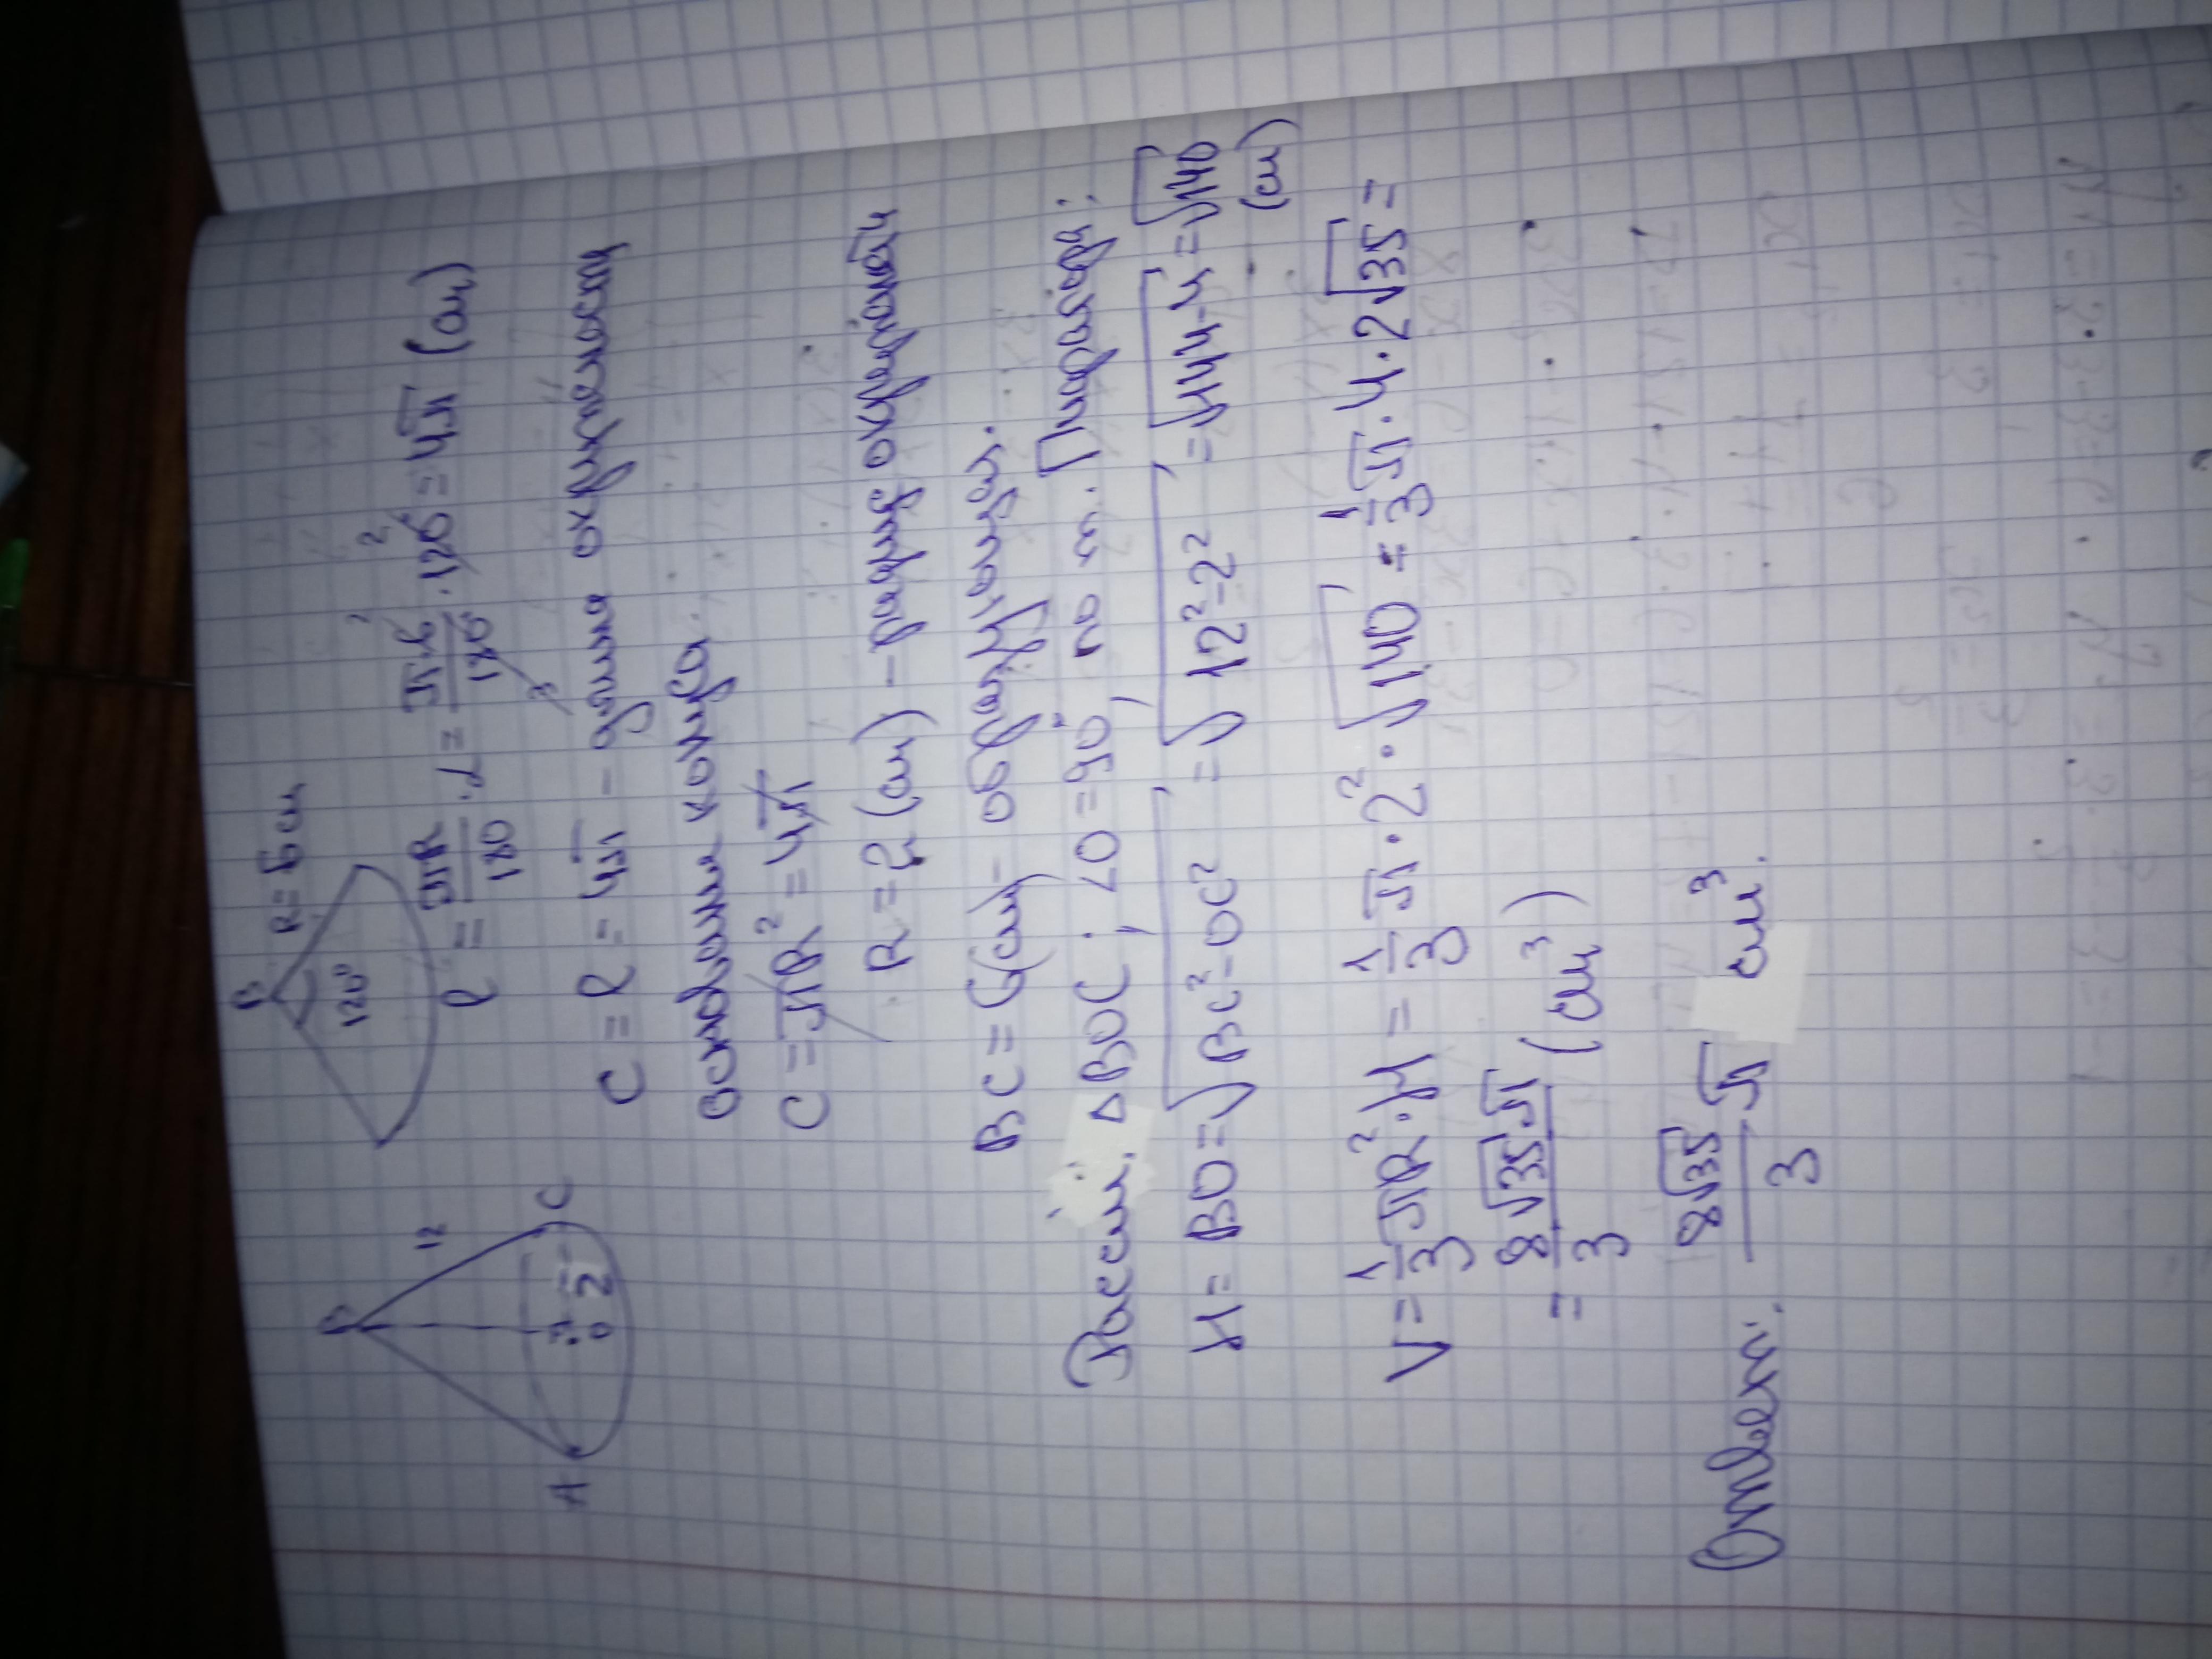 B
R = 6 см
120°
l = πR/180 · α = π6/180 · 120 = 4π (см)
1 2
3
B
12
A O 2 C
C = l = 4π – длина окружности
основания конуса.
C = πR² = 4π
R = 2 (см) – радиус окружности
BC = 6(см) – образующая.
Рассм. ΔBOC; ∠O = 90°, по т. Пифагора:
H = BO = √BC² - OC² = √12² - 2² = √144 - 4 = √140
(см)
V = 1/3 πR² · H = 1/3 π · 2² · √140 = 1/3 π · 4 · 2√35 =
= 8√35 · π/3 (см³)
Ответ: 8√35/3 π см³.